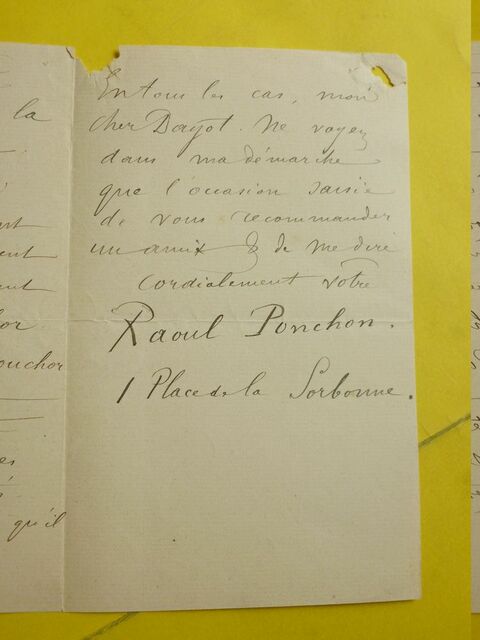 la
ent
ent
ent
hor
ouchor
es
é
qu'il
En tous les cas, mon
cher Dayot. Ne voyez
dans ma démarche
que l'occasion saisie
de vous recommander
un ami & de me dire
cordialement votre
Raoul Ponchon.
1 Place de la Sorbonne.